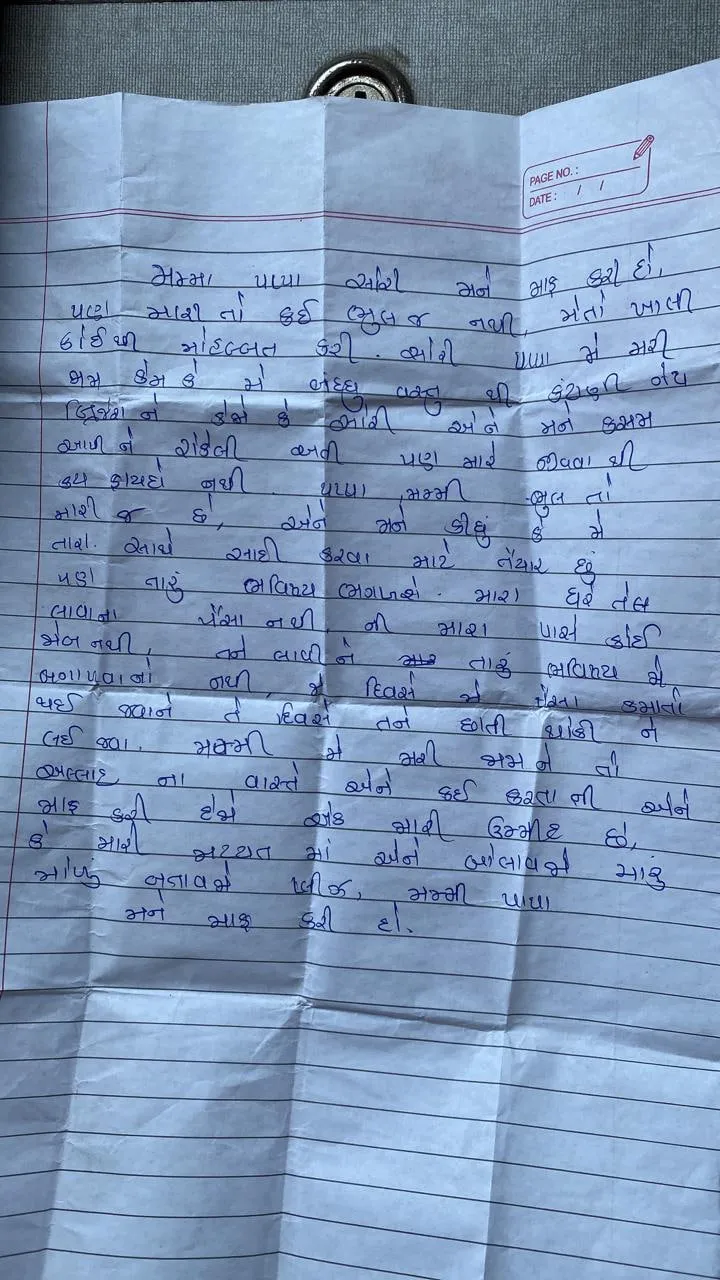 PAGE NO. :
DATE : / /
મમ્મા પપ્પા સોરી મને માફ કરી દો,
પણ મારી તો કઈ ભુલ જ નથી, મેતો ખાલી
કોઈ થી મોહબ્બત કરી. સોરી પપ્પા મે મરી
જામ કેમ કે મે વસ્તુ થી
ને કેમ કે સોરી એને મને કસમ
આપી ને રોકેલી અતી પણ મારે જીવવા થી
કય ફાયદો નથી. પપ્પા, મમ્મી ભુલ તો
મારી જ છે, એને મને કીધું કે મે
તારા સાથે સાદી કરવા માટે તૈયાર છું
પણ તારું ભવિષ્ય મારા ઘરે તેલ
લાવાના પૈસા નથી, ની મારા પાસે કોઈ
જોબ નથી, તને લાવી ને તારું ભવિષ્ય મે
નથી, જે દિવસે મે પૈસા કમાતો
થઈ જવાને તે દિવસે તને છાતી ઠોકી ને
લઈ જવા. મમ્મી મે મરી જામ ને તો
અલ્લાહ ના વાસ્તે એને કઈ કરતા ની એને
માફ કરી દેજો એક મારી ઉમ્મીદ છે,
કે મારી મય્યત માં એને બોલાવજો મારું
મોળું બતાવજો પ્લીઝ, મમ્મી પાપા
મને માફ કરી દો.